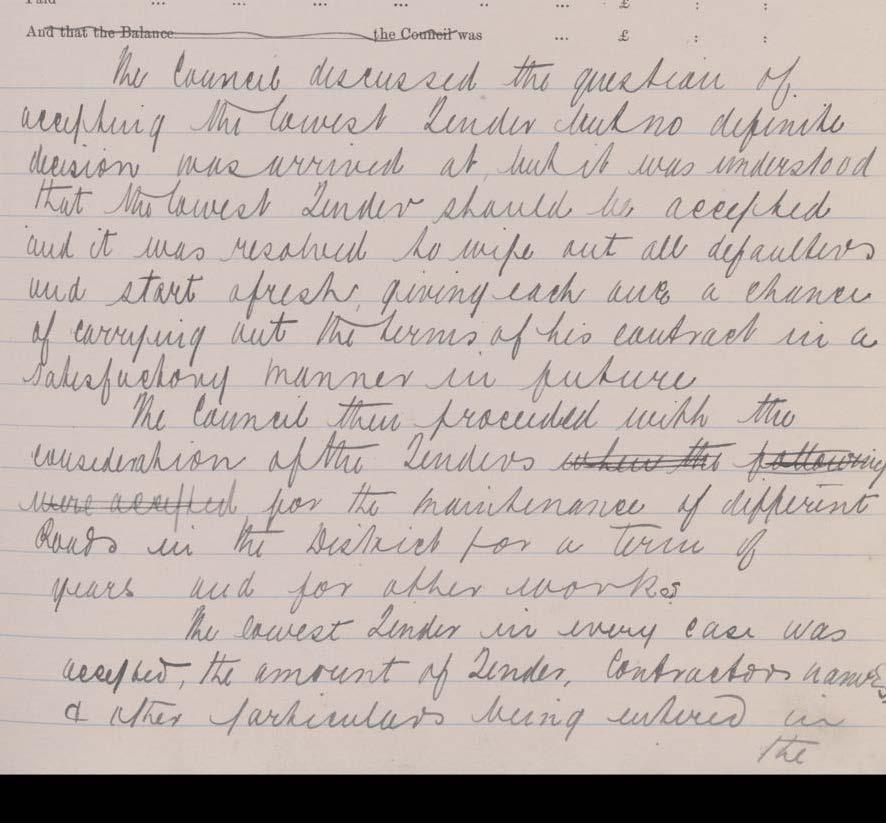 Paid ... ... ... ... ... ... £ : :
And that the Balance the Council was ... £ : :
The Council discussed the question of
accepting the lowest Tender but no definite
decision was arrived at, but it was understood
that the lowest Tender should be accepted
and it was resolved to wipe out all defaulters
and start afresh, giving each one a chance
of carrying out the terms of his contract in a
satisfactory manner in future
The Council then proceeded with the
consideration of the Tenders when the following
were accepted for the maintenance of different
Roads in the District for a term of
years and for other works
The lowest Tender in every case was
accepted, the amount of Tender, Contractors names
& other particulars being entered in
the